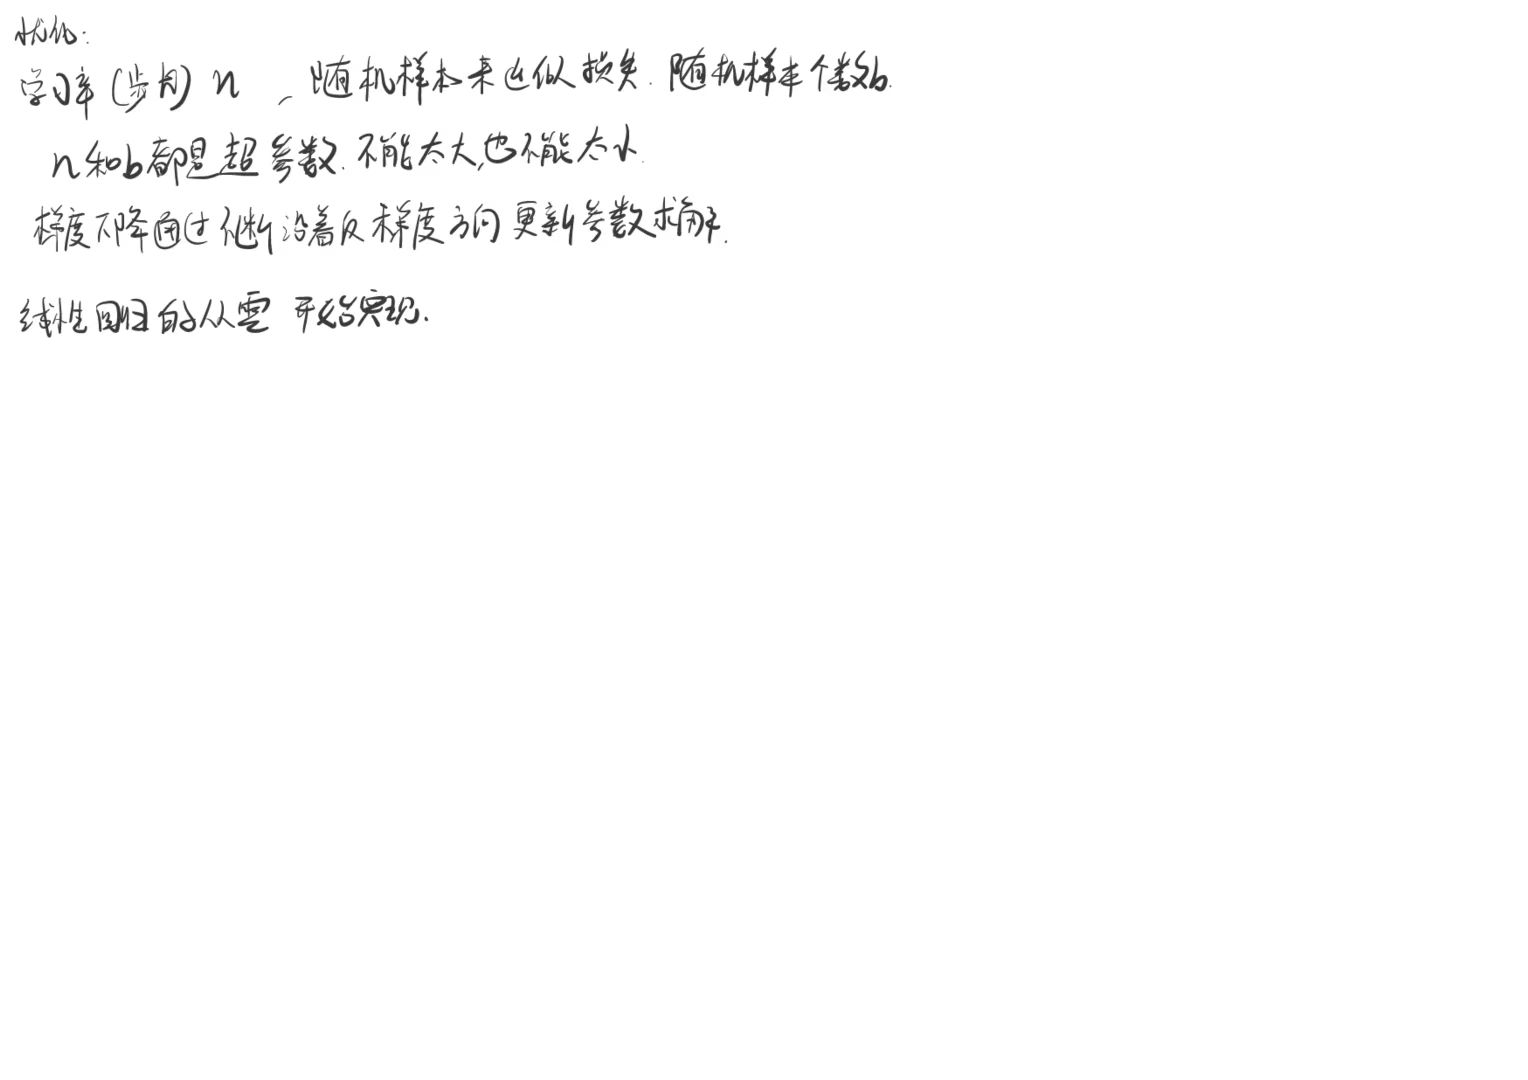 优化:
学习率(步长) n , 随机样本来近似损失. 随机样本个数b.
n和b都是超参数. 不能太大,也不能太小.
梯度下降通过不断沿着反梯度方向更新参数求解.
线性回归的从零开始实现.